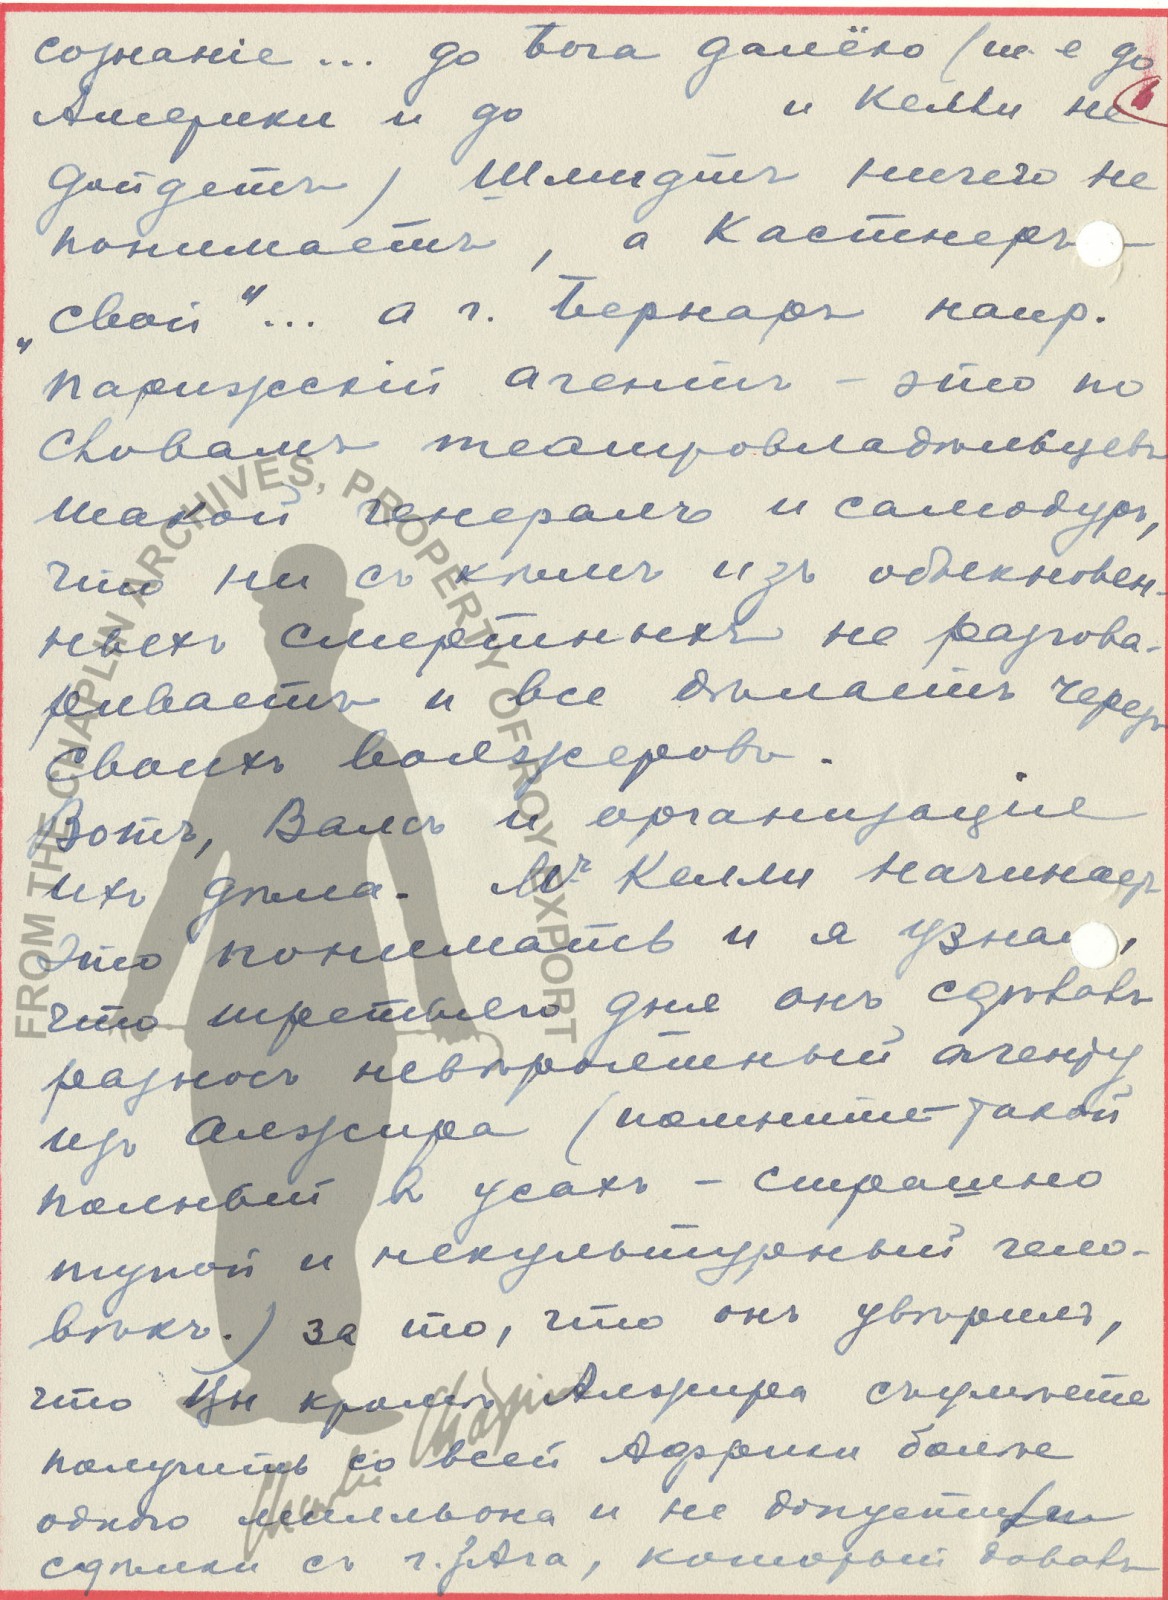 сознаніе ... до Бога далёко (т е до
Америки и до и Келли не
дойдетъ) Шмидтъ ничего не
понимаетъ, а Кастнеръ -
„свой" ... а г. Бернаръ напр.
парижскій агентъ - это по
словамъ театровладѣльцевъ
такой генералъ и самодуръ,
что ни съ кѣмъ изъ обыкновен-
ныхъ смертныхъ не разгова-
риваетъ и все дѣлаетъ черезъ
своихъ вояжеровъ.
Вотъ, Вамъ и организація
ихъ дѣла. Mr Келли начинаетъ
это понимать и я узнал,
что третьяго дня онъ сдѣлалъ
разносъ невѣроятный агенту
изъ Алжира (помните такой
полный въ усахъ - страшно
тупой и некультурный чело-
вѣкъ.) за то, что онъ увѣрилъ,
что Вы кромѣ Алжира съумѣете
получить со всей Африки болѣе
одного мильона и не допустили
сдѣлки съ г. Ага, который давалъ
FROM THE CHAPLIN ARCHIVES, PROPERTY OF ROY EXPORT
Charlie Chaplin